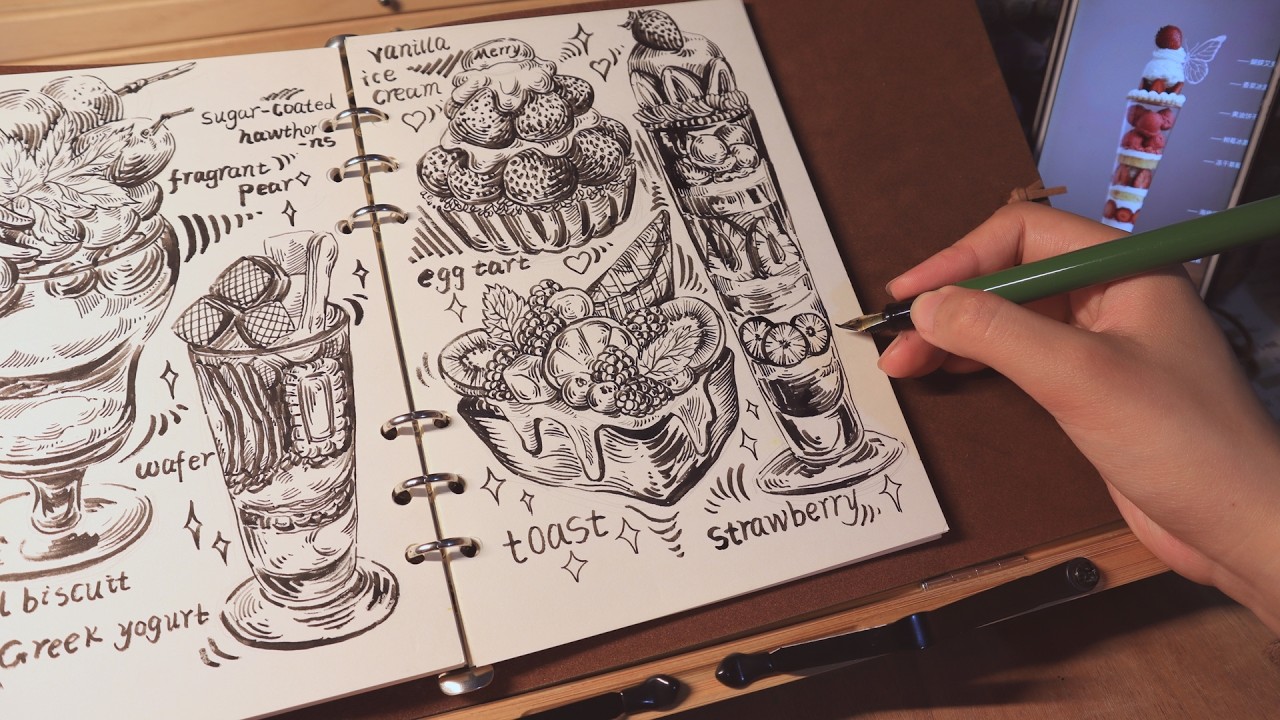 sugar-coated
hawthor
-ns
fragrant
pear
wafer
l biscuit
Greek yogurt
vanilla
ice
cream
Merry
egg tart
toast
strawberry